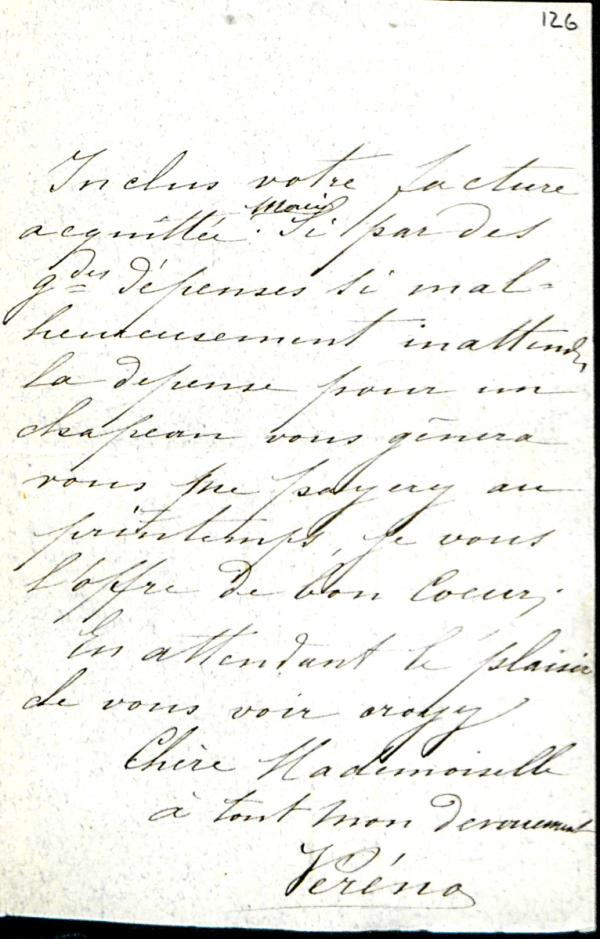 126
Inclus votre facture
acquittée. Merci Si par des
gdes dépenses si mal-
heureusement inattendues
la depense pour un
chapeau vous gênera
vous me payerez au
printemps, je vous
l'offre de bon Coeur,
En attendant le plaisir
de vous voir croyez
Chère Mademoiselle
à tout mon devouement